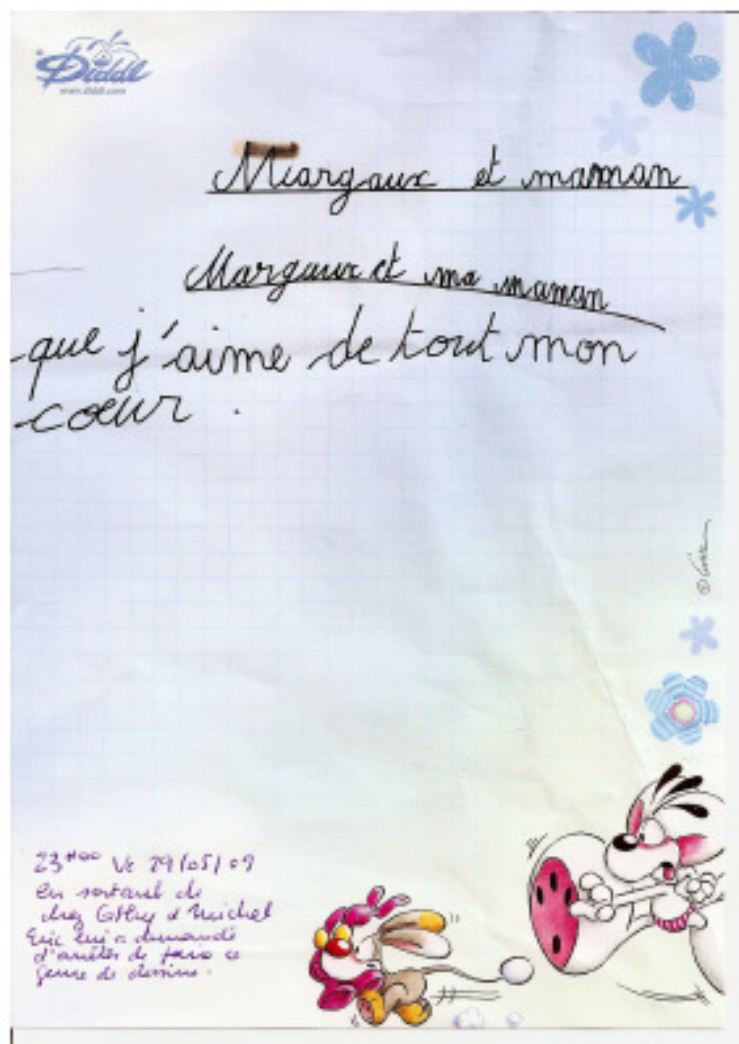 Diddl
www.diddl.com
Margaux et maman
Margaux et ma maman
que j'aime de tout mon
coeur.
23H00 Ve 29/05/09
en sortant de
chez Cathy et Michel
Eric lui a demandé
d'arrêter de faire ce
genre de dessins.